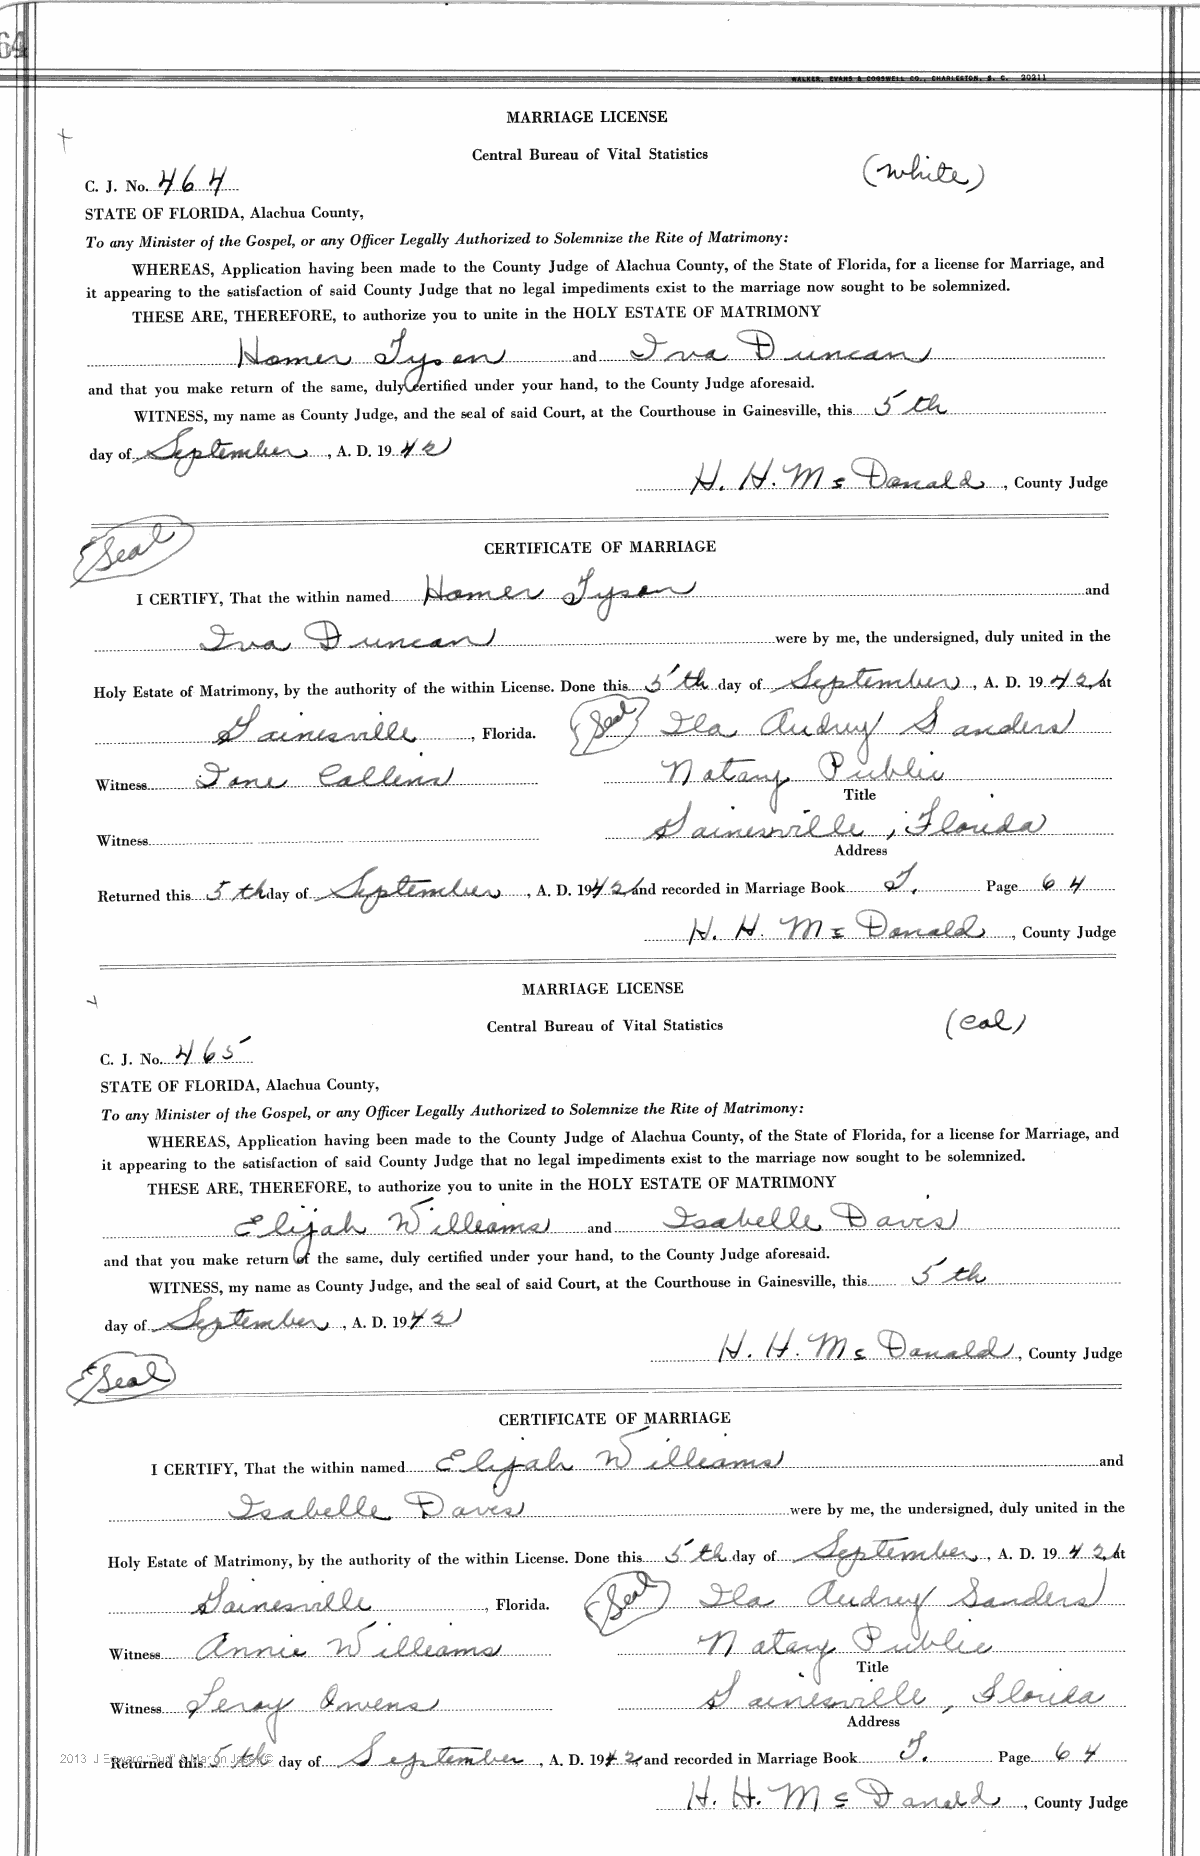 64
WALKER, EVANS & COGSWELL CO., CHARLESTON, S. C. 20211
MARRIAGE LICENSE
Central Bureau of Vital Statistics
(white)
C. J. No. 464
STATE OF FLORIDA, Alachua County,
To any Minister of the Gospel, or any Officer Legally Authorized to Solemnize the Rite of Matrimony:
WHEREAS, Application having been made to the County Judge of Alachua County, of the State of Florida, for a license for Marriage, and
it appearing to the satisfaction of said County Judge that no legal impediments exist to the marriage now sought to be solemnized.
THESE ARE, THEREFORE, to authorize you to unite in the HOLY ESTATE OF MATRIMONY
Homer Tyson and Iva Duncan
and that you make return of the same, duly certified under your hand, to the County Judge aforesaid.
WITNESS, my name as County Judge, and the seal of said Court, at the Courthouse in Gainesville, this 5th
day of September, A. D. 1942
H. H. McDonald, County Judge
Seal
CERTIFICATE OF MARRIAGE
I CERTIFY, That the within named Homer Tyson and
Iva Duncan were by me, the undersigned, duly united in the
Holy Estate of Matrimony, by the authority of the within License. Done this 5th day of September, A. D. 1942, at
Gainesville, Florida. Seal Ila Audrey Sanders
Witness Jane Collens Notary Public
Title
Witness Gainesville, Florida
Address
Returned this 5th day of September, A. D. 1942, and recorded in Marriage Book J. Page 64
H. H. McDonald, County Judge
MARRIAGE LICENSE
Central Bureau of Vital Statistics
(col)
C. J. No. 465
STATE OF FLORIDA, Alachua County,
To any Minister of the Gospel, or any Officer Legally Authorized to Solemnize the Rite of Matrimony:
WHEREAS, Application having been made to the County Judge of Alachua County, of the State of Florida, for a license for Marriage, and
it appearing to the satisfaction of said County Judge that no legal impediments exist to the marriage now sought to be solemnized.
THESE ARE, THEREFORE, to authorize you to unite in the HOLY ESTATE OF MATRIMONY
Elijah Williams and Isabelle Davis
and that you make return of the same, duly certified under your hand, to the County Judge aforesaid.
WITNESS, my name as County Judge, and the seal of said Court, at the Courthouse in Gainesville, this 5th
day of September, A. D. 1942
H. H. McDonald, County Judge
Seal
CERTIFICATE OF MARRIAGE
I CERTIFY, That the within named Elijah Williams and
Isabelle Davis were by me, the undersigned, duly united in the
Holy Estate of Matrimony, by the authority of the within License. Done this 5th day of September, A. D. 1942, at
Gainesville, Florida. Seal Ila Audrey Sanders
Witness Annie Williams Notary Public
Title
Witness Leroy Owens Gainesville, Florida
Address
Returned this 5th day of September, A. D. 1942, and recorded in Marriage Book J. Page 64
2013 J Edward "Bud"
H. H. McDonald, County Judge